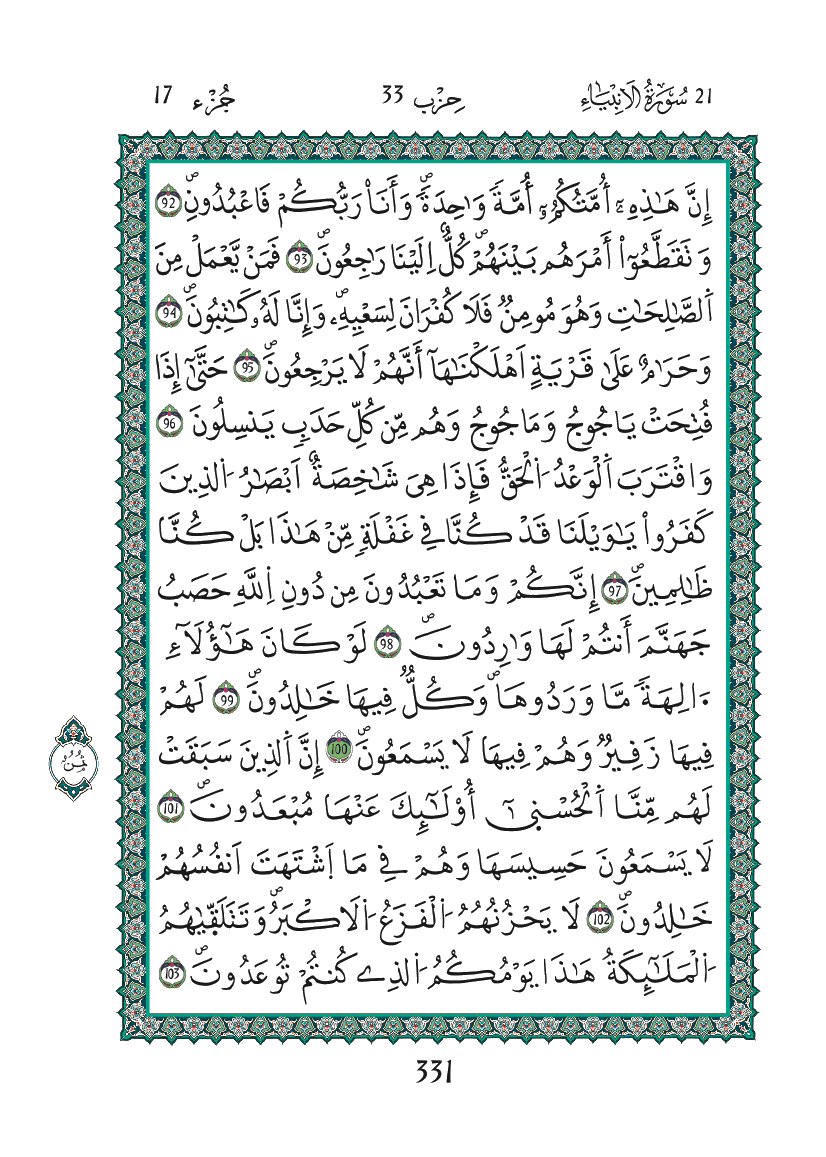 21 سُورَةُ الاَنبِيَاءِ حِزْب 33 جُزْء 17
إِنَّ هَٰذِهِۦٓ أُمَّتُكُمُۥٓ أُمَّةً وَٰحِدَةً ۖ وَأَنَا۠ رَبُّكُمْ فَاعْبُدُونِ ۖ 92
وَتَقَطَّعُوٓاْ أَمْرَهُم بَيْنَهُمْ ۖ كُلٌّ اِلَيْنَا رَٰجِعُونَ ۖ 93 فَمَنْ يَّعْمَلْ مِنَ
اَ۬لصَّٰلِحَٰتِ وَهُوَ مُومِنٌ فَلَا كُفْرَانَ لِسَعْيِهِۦ ۖ وَإِنَّا لَهُۥ كَٰتِبُونَ ۖ 94
وَحَرَٰمٌ عَلَىٰ قَرْيَةٍ اَهْلَكْنَٰهَآ أَنَّهُمْ لَا يَرْجِعُونَ ۖ 95 حَتَّىٰٓ إِذَا
فُتِحَتْ يَاجُوجُ وَمَاجُوجُ وَهُم مِّن كُلِّ حَدَبٍ يَنسِلُونَ 96
وَاقْتَرَبَ اَ۬لْوَعْدُ اَ۬لْحَقُّ فَإِذَا هِيَ شَٰخِصَةٌ اَبْصَٰرُ اَ۬لذِينَ
كَفَرُواْ يَٰوَيْلَنَا قَدْ كُنَّا فِي غَفْلَةٍ مِّنْ هَٰذَا بَلْ كُنَّا
ظَٰلِمِينَ ۖ 97 إِنَّكُمْ وَمَا تَعْبُدُونَ مِن دُونِ اِ۬للَّهِ حَصَبُ
جَهَنَّمَ أَنتُمْ لَهَا وَٰرِدُونَ ۖ 98 لَوْ كَانَ هَٰٓؤُلَآءِ
اَ۬لِهَةً مَّا وَرَدُوهَا ۖ وَكُلٌّ فِيهَا خَٰلِدُونَ ۖ 99 لَهُمْ
فِيهَا زَفِيرٌ وَهُمْ فِيهَا لَا يَسْمَعُونَ ۖ 100 إِنَّ اَ۬لذِينَ سَبَقَتْ
لَهُم مِّنَّا اَ۬لْحُسْنۭىٰٓ أُوْلَٰٓئِكَ عَنْهَا مُبْعَدُونَ ۖ 101
لَا يَسْمَعُونَ حَسِيسَهَا وَهُمْ فِي مَا اَ۪شْتَهَتَ اَنفُسُهُمْ
خَٰلِدُونَ ۖ 102 لَا يَحْزُنُهُمُ اَ۬لْفَزَعُ اَ۬لَاكْبَرُ وَتَتَلَقّۭيٰهُمُ
اَ۬لْمَلَٰٓئِكَةُ هَٰذَا يَوْمُكُمُ اَ۬لذِے كُنتُمْ تُوعَدُونَ ۖ 103
ثُمُن
331